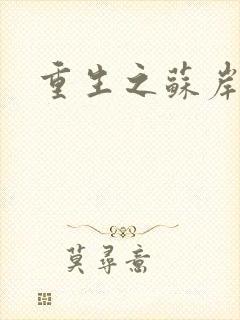 重生之蘇岸
莫尋意